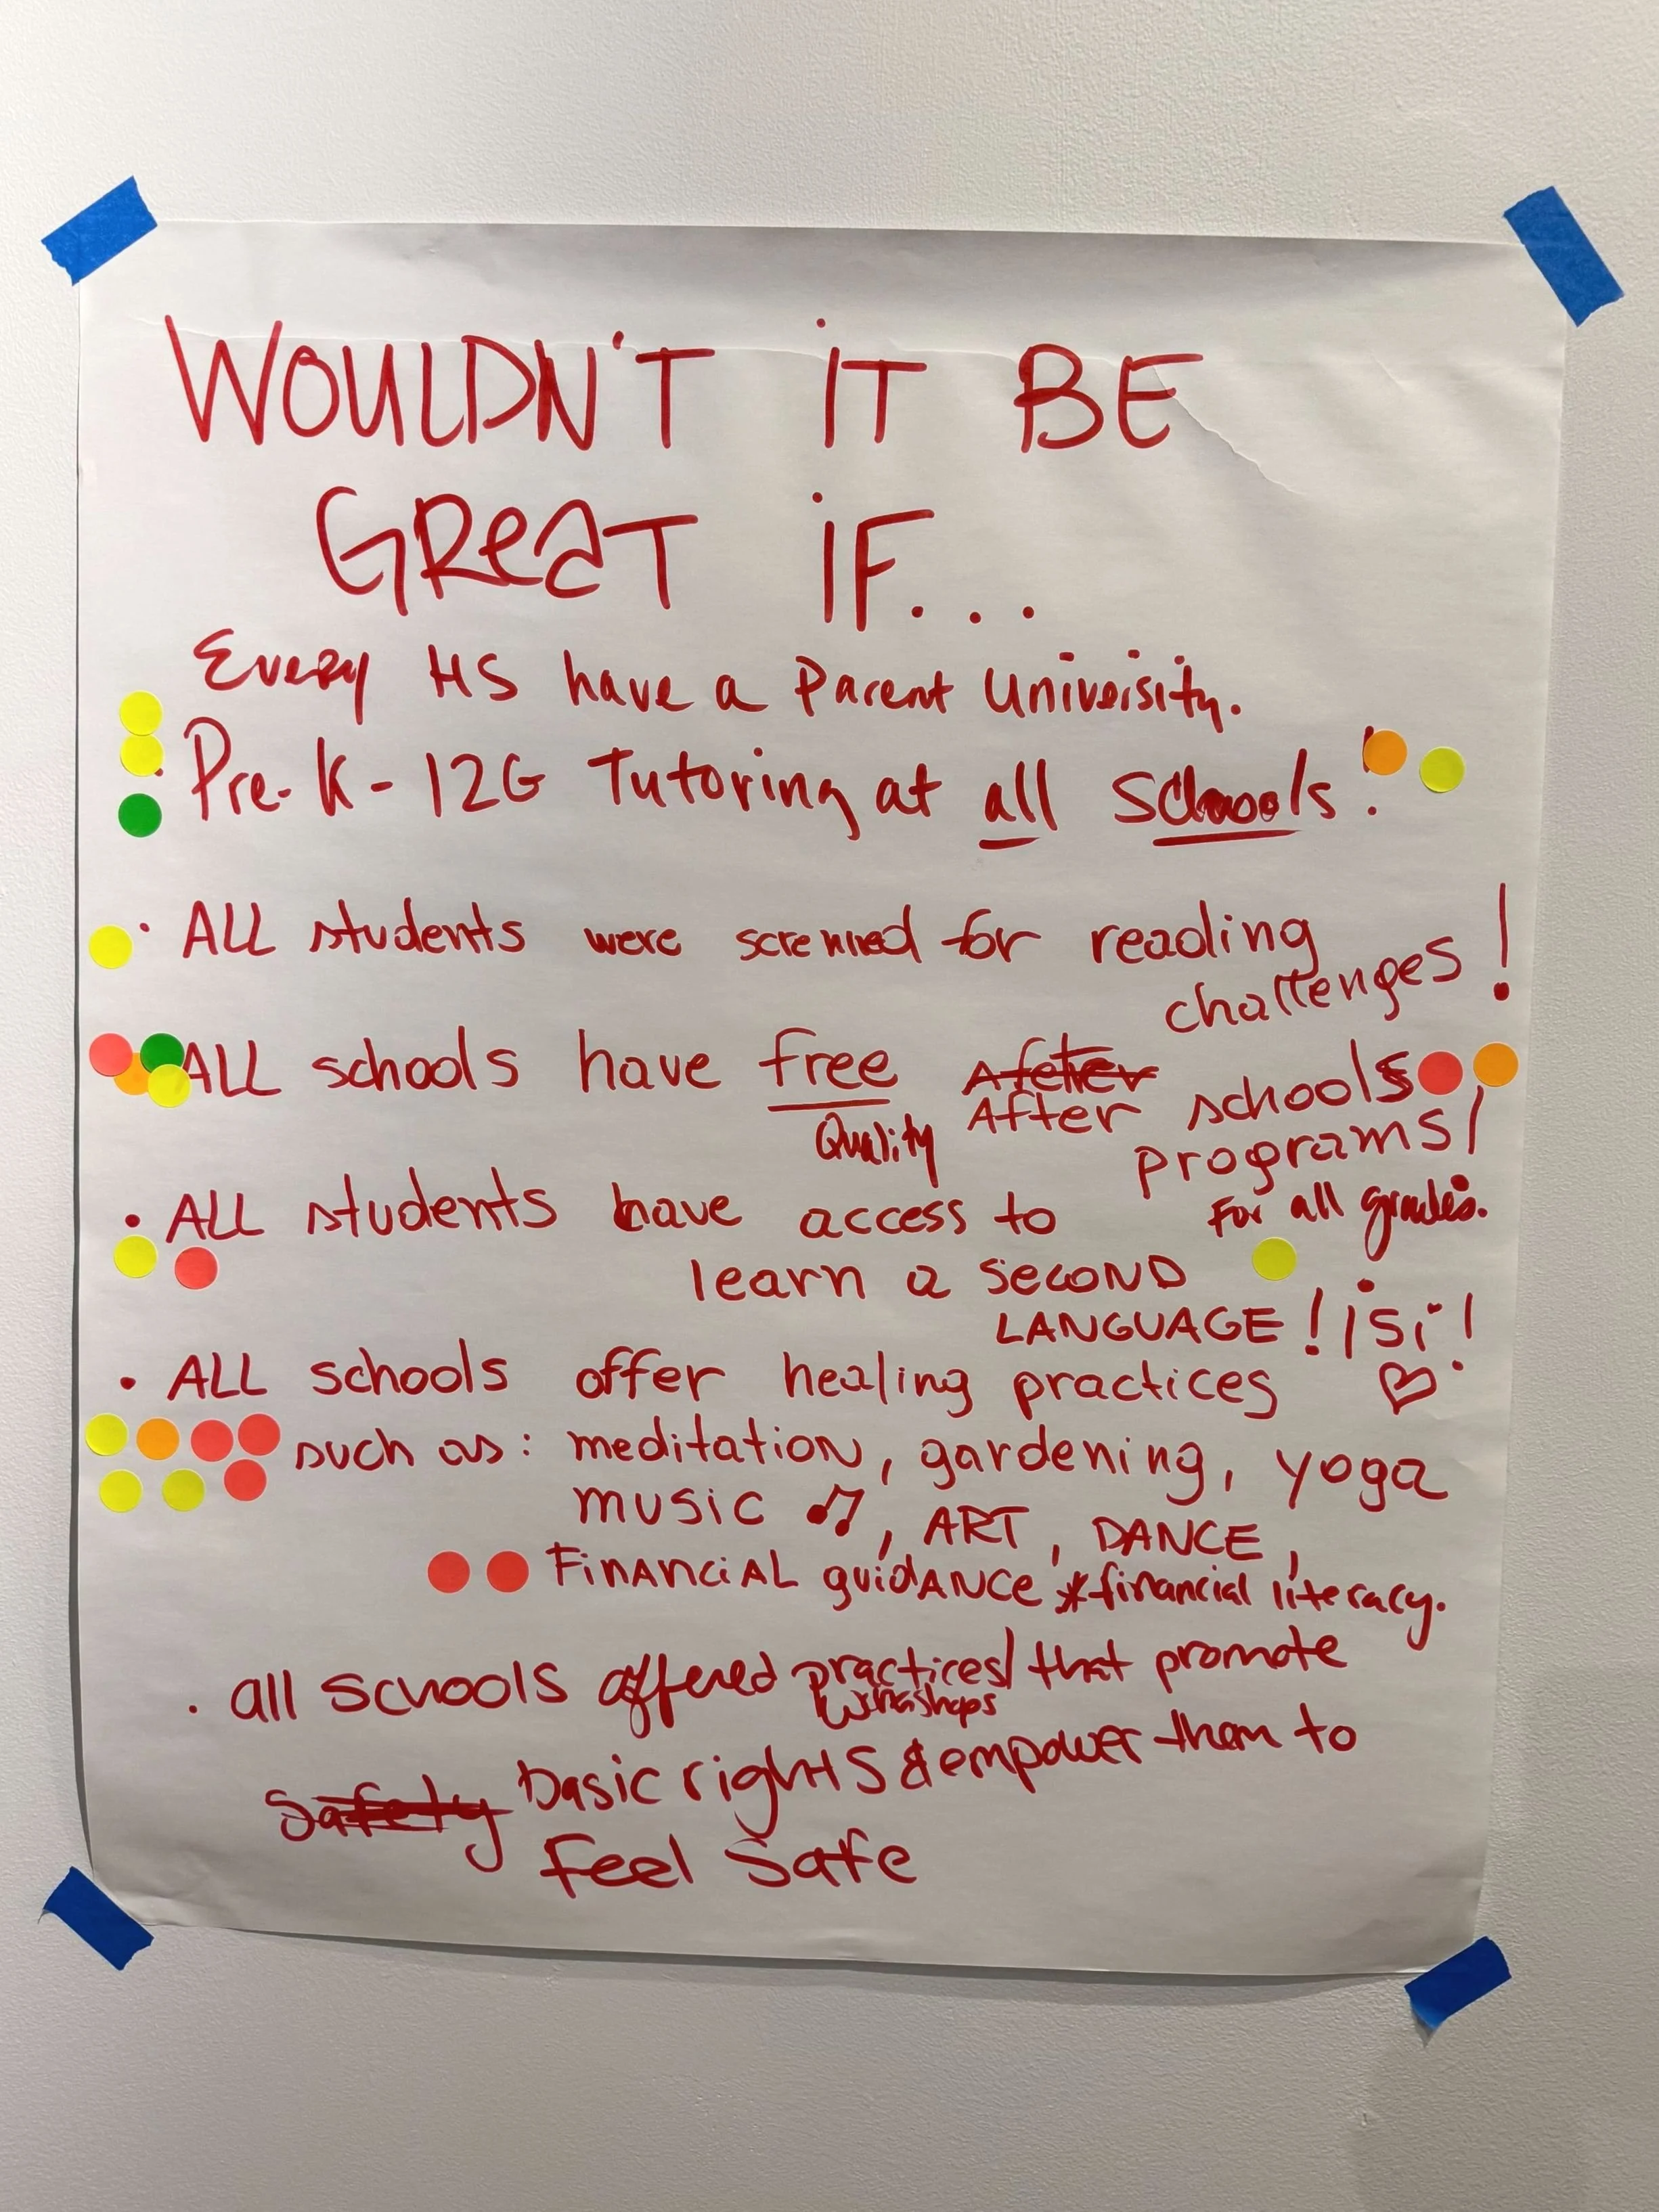 WOULDN'T IT BE
GREAT IF...
Every HS have a Parent University.
· Pre-K-12G Tutoring at all Schools!
· ALL students were screnned for reading
challenges!
ALL schools have free Afeter schools
Quality After programs!
for all grades.
· ALL students have access to
learn a SECOND
LANGUAGE! ¡Sí!
· ALL schools offer healing practices ♡
such as: meditation, gardening, yoga
music ♫, ART, DANCE,
FINANCIAL guidANCE *financial literacy.
· all schools offered practices/ that promote
workshops
Safety basic rights & empower them to
Feel Safe